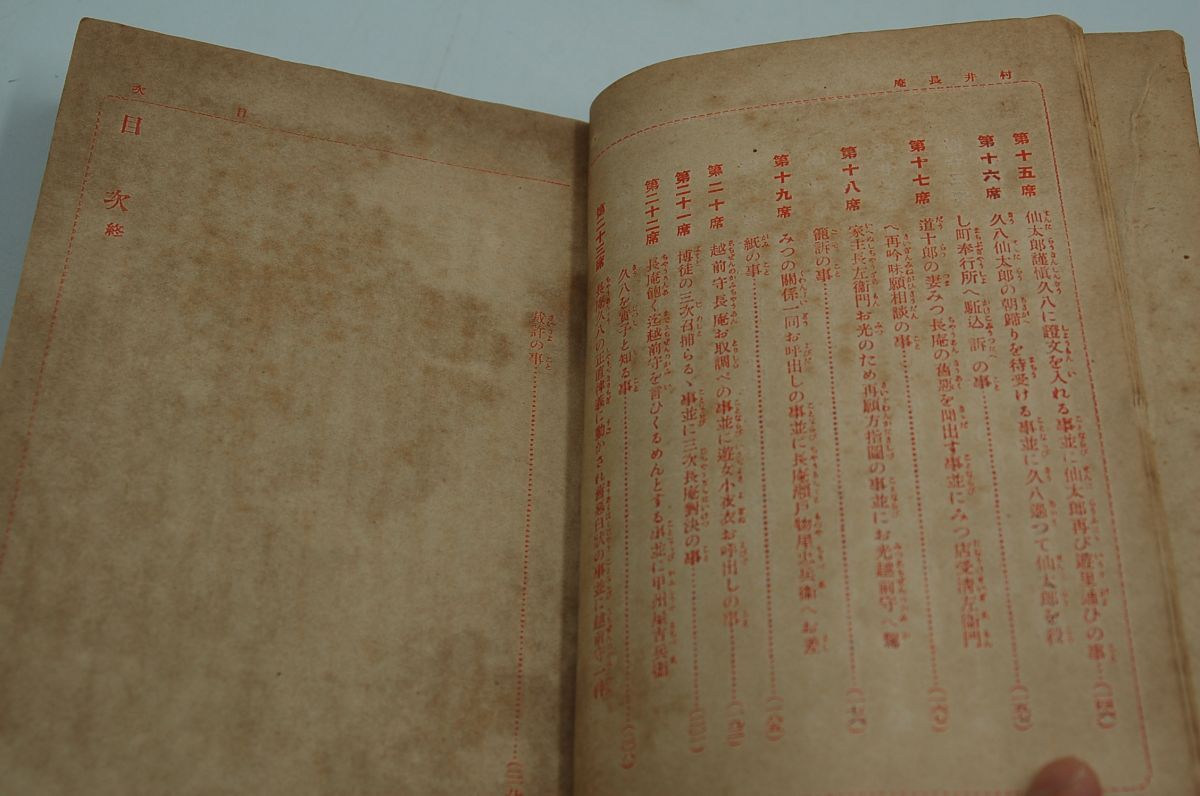 村井長庵
第十五席 仙太郎謹愼久八に證文を入れる事並に仙太郎再び遊里通ひの事
第十六席 久八仙太郎の朝歸りを待受ける事並に久八過つて仙太郎を殺
し町奉行所へ駈込訴の事
第十七席 道十郎の妻みつ長庵の舊惡を聞出す事並にみつ店受清左衞門
へ再吟味願相談の事
第十八席 家主長左衞門お光のため再願方指圖の事並にお光越前守へ駕
籠訴の事
第十九席 みつの關係一同お呼出しの事並に長庵瀬戸物屋忠兵衞へお差
紙の事
第二十席 越前守長庵お取調べの事並に遊女小夜衣お呼出しの事
第二十一席 博徒の三次召捕らるゝ事並に三次長庵對決の事
第二十二席 長庵飽く迄越前守を言ひくるめんとする事並に甲州屋吉兵衞
久八を實子と知る事
第二十三席 長庵久八の正直律義に動かされ舊惡白状の事並に越前守一件
裁許の事
目次
目次終